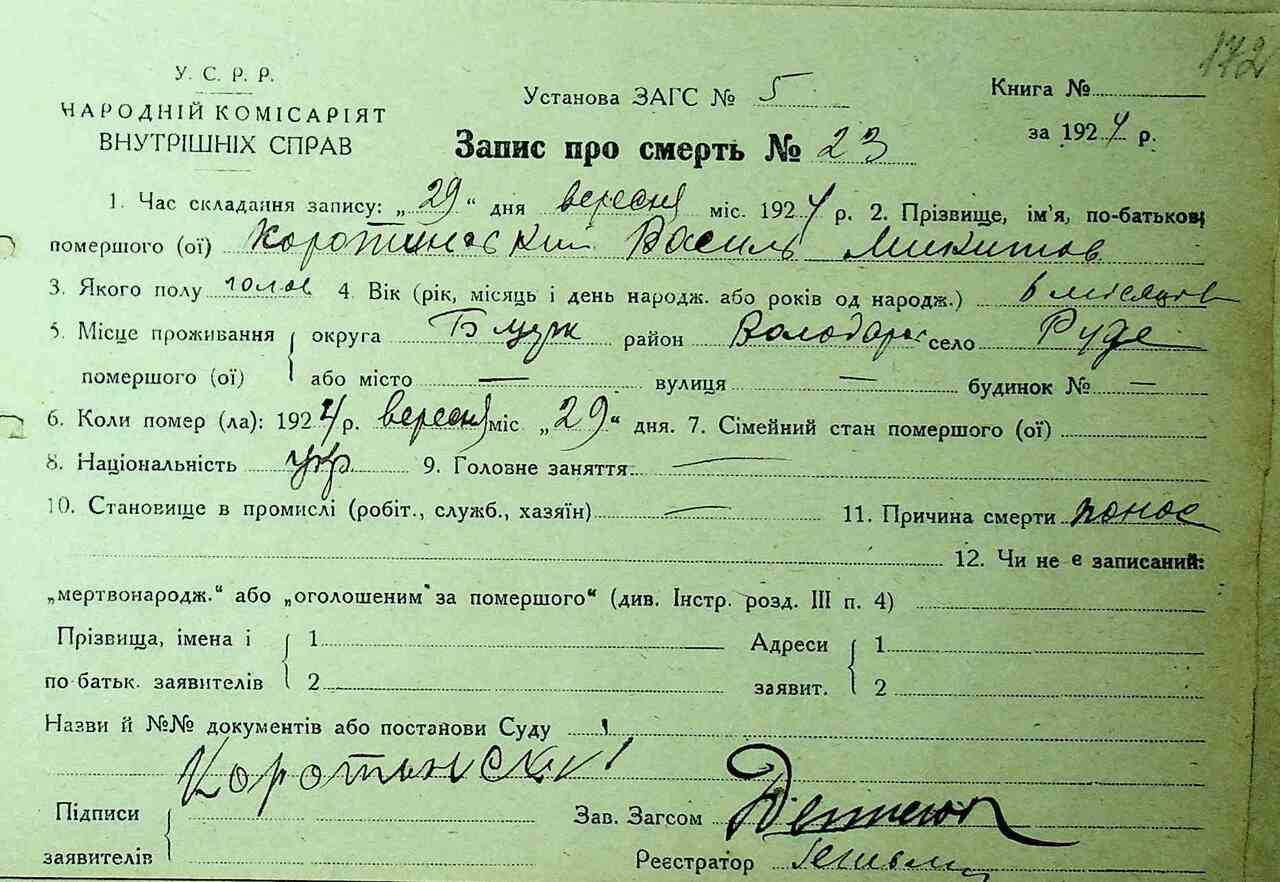 172
У. С. Р. Р.
НАРОДНІЙ КОМІСАРІЯТ
ВНУТРІШНІХ СПРАВ
Установа ЗАГС № 5
Книга №
за 1924 р.
Запис про смерть № 23
1. Час складання запису: „29“ дня вересня міс. 1924 р. 2. Прізвище, ім'я, по-батькові
помершого (ої) Коротинский Василь Микитов
3. Якого полу чолов 4. Вік (рік, місяць і день народж. або років од народж.) 6 місяців
5. Місце проживання округа Б Церк район Володарс село Руде
помершого (ої) або місто — вулиця — будинок № —
6. Коли помер (ла): 1924 р. вересня міс „29“ дня. 7. Сімейний стан помершого (ої)
8. Національність укр 9. Головне заняття: —
10. Становище в промислі (робіт., служб., хазяїн) — 11. Причина смерти понос
12. Чи не є записаний:
„мертвонародж.“ або „оголошеним за помершого“ (див. Інстр. розд. III п. 4)
Прізвища, імена і 1 Адреси 1
по-батьк. заявителів 2 заявит. 2
Назви й №№ документів або постанови Суду
Коротинский
Підписи Зав. Загсом
заявителів Реєстратор